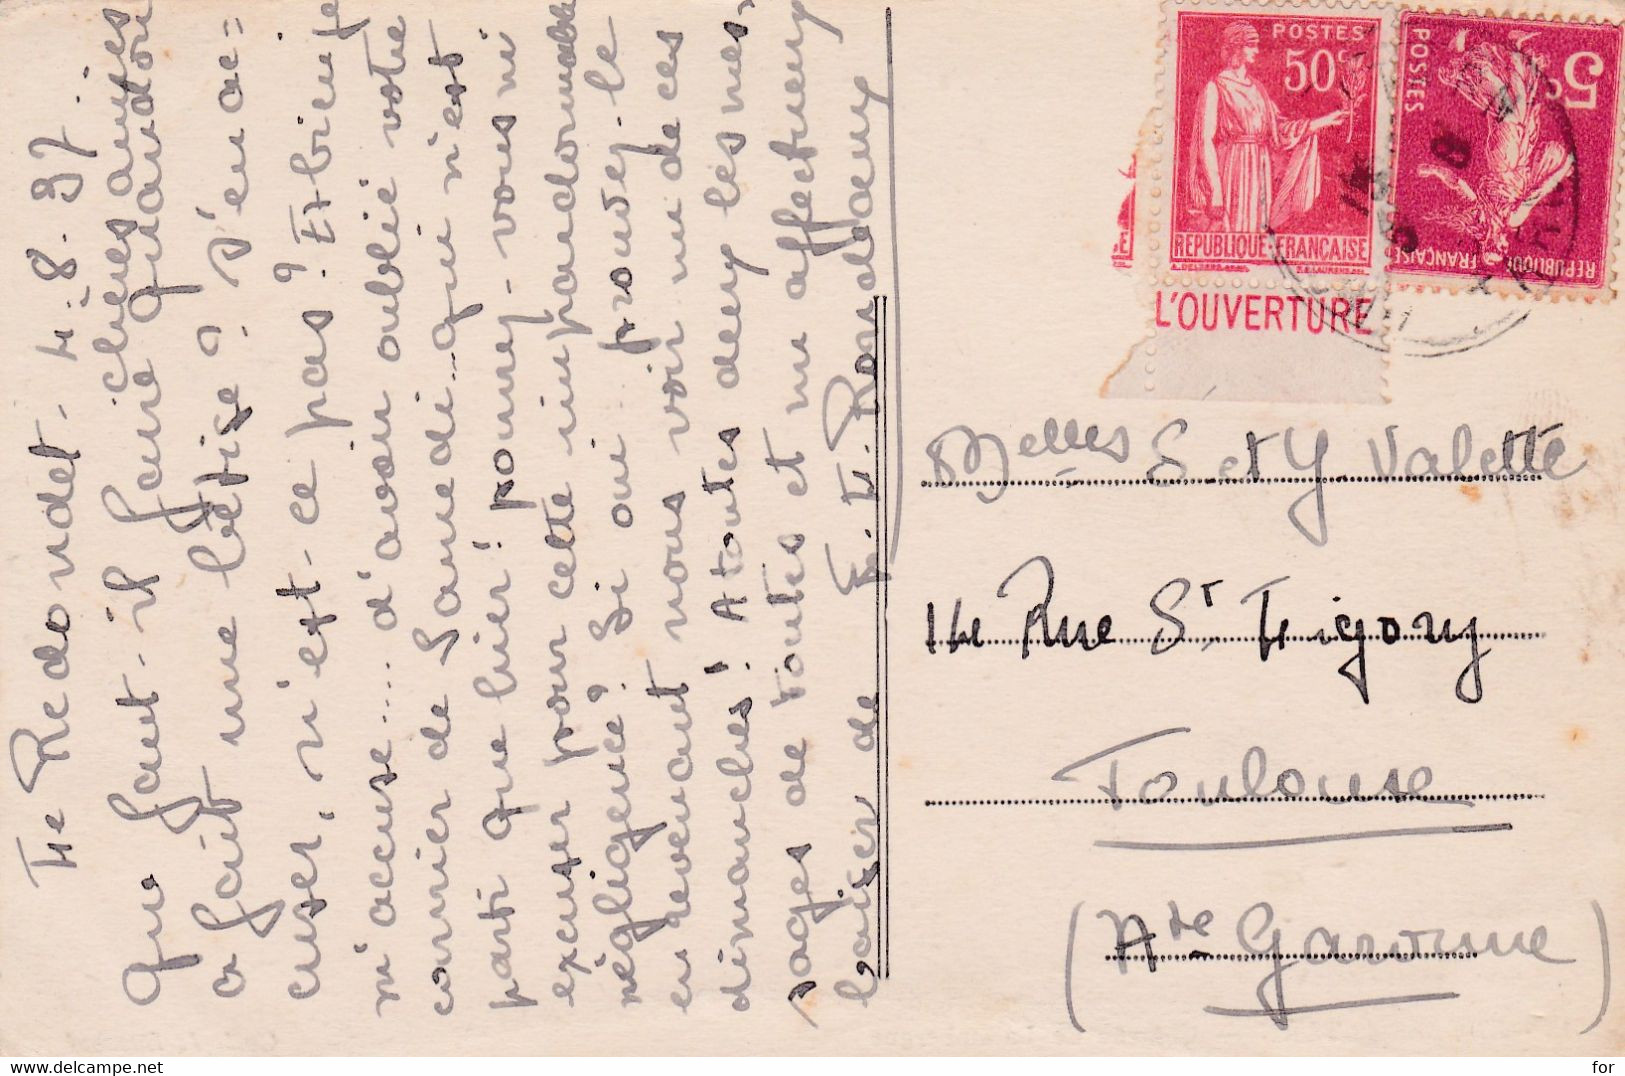 Le Redondet - 4.8.37.
Que faut-il faire chères amies quand on
a fait une bêtise? S'en ac=
cuser, n'est-ce pas? Et bien je
m'accuse... d'avoir oublié votre
courrier de Samedi... qui n'est
parti que hier! pourrez-vous m'
excuser pour cette impardonnable
négligence? Si oui.. prouvez-le
en revenant nous voir un de ces
dimanches! A toutes deux les mes-
sages de toutes et un affectueux
baiser de
POSTES
50c
REPUBLIQUE FRANÇAISE
L'OUVERTURE
POSTES
5c
REPUBLIQUE FRANÇAISE
Melles S et Y Valette
14 Rue St
Toulouse
(Hte Garonne)